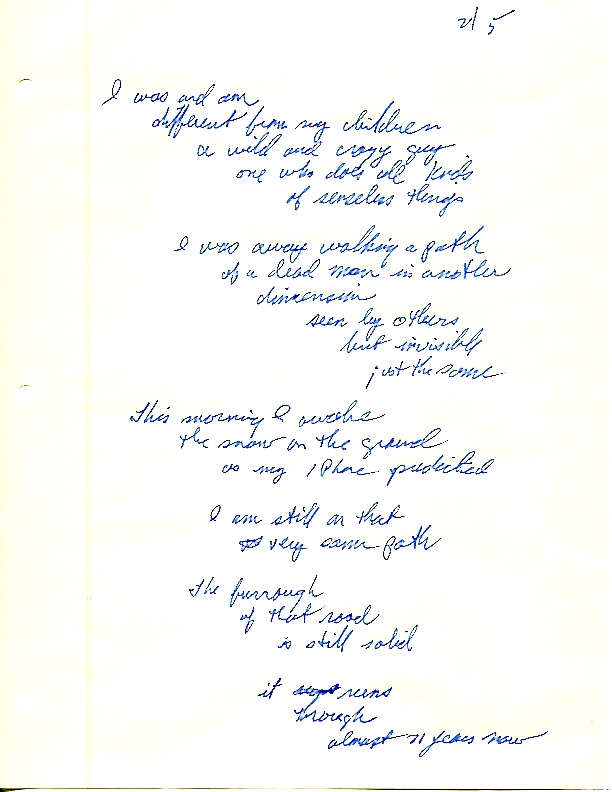 2/5
I was and am
different from my children
a wild and crazy guy
one who does all kinds
of senseless things
I was away walking a path
of a dead man in another
dimension
seen by others
but invisible
just the same
This morning I awoke
the snow on the ground
as my iPhone predicted
I am still on that
very same path
the furrough
of that road
is still solid
it runs
through
almost 71 years now